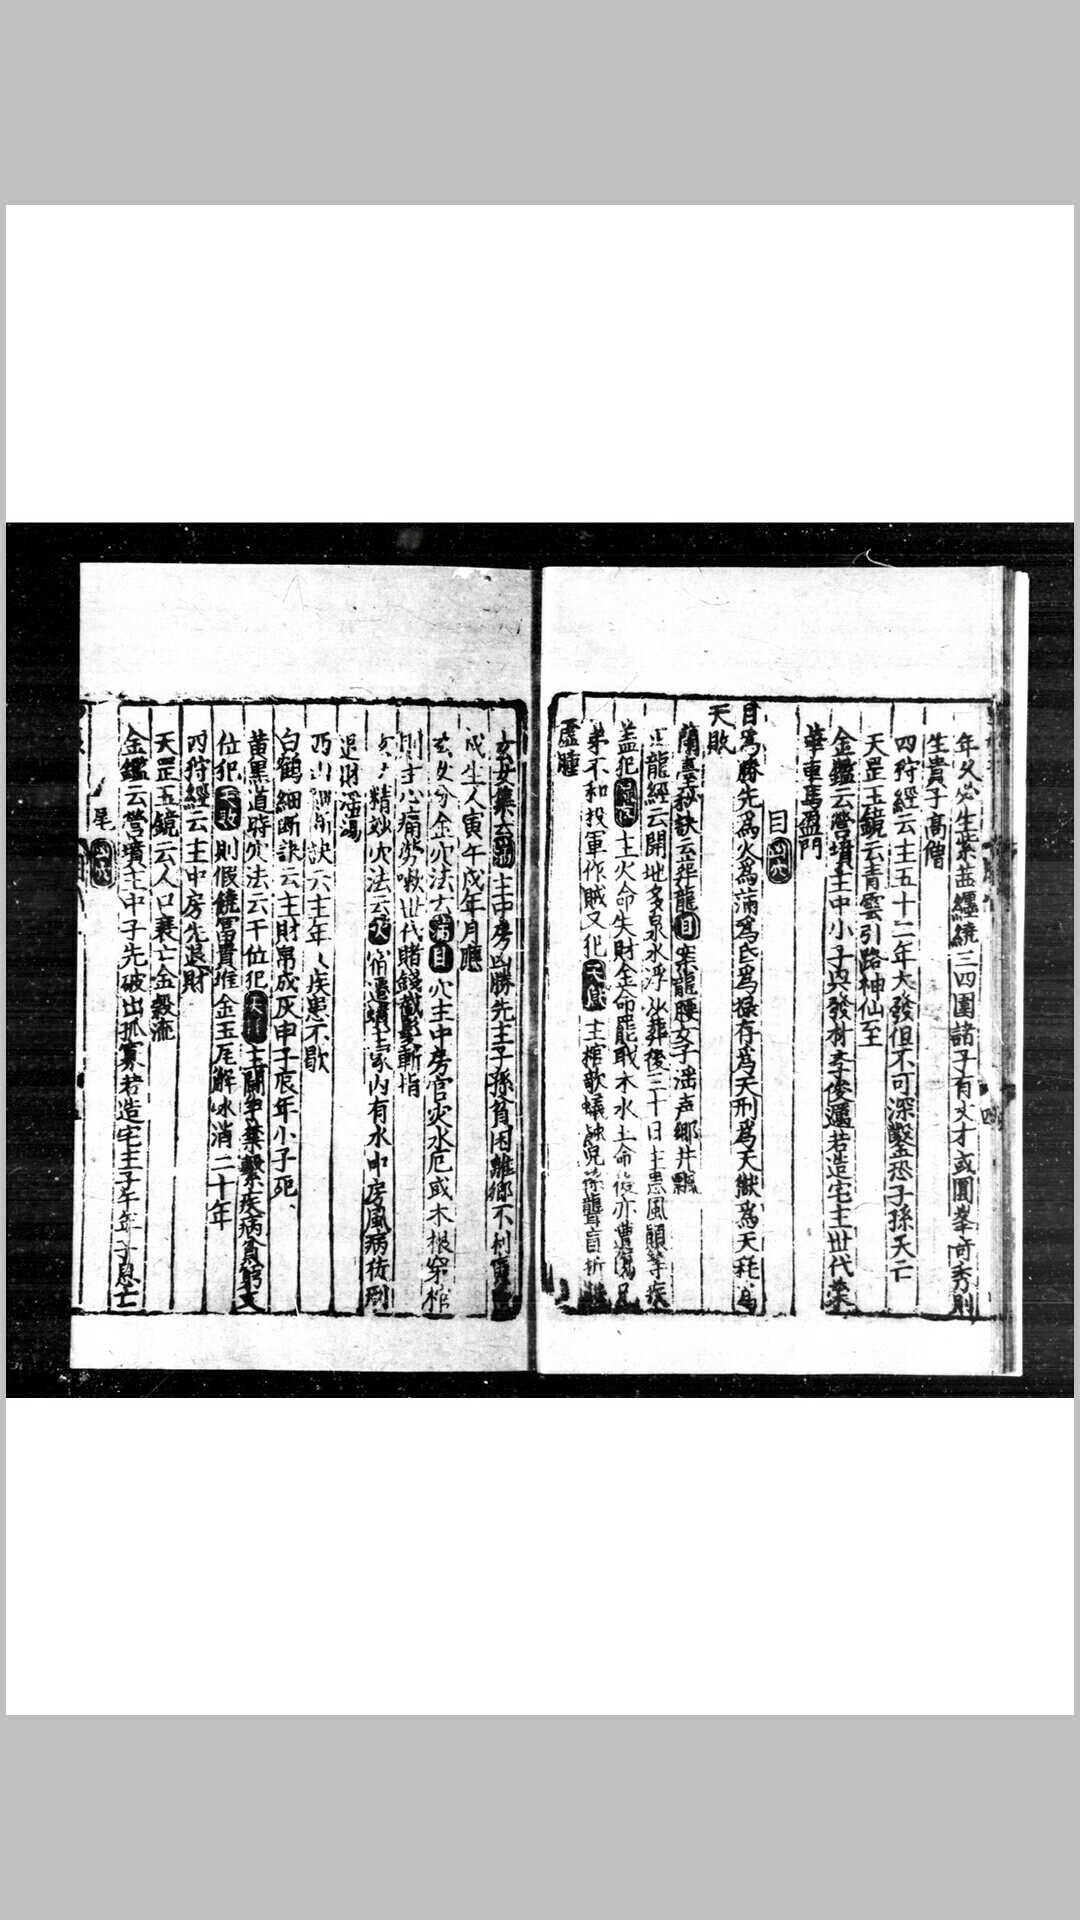 年久必生紫藤纏繞三四圍諸子有文才或圓峯奇秀則
生貴子高僧
四狩經云主五十二年大發但不可深鑿恐子孫夭亡
天罡玉鏡云青雲引路神仙至
金鑑云營墳主中小子與發材李俊邁若造宅主世代榮
華車馬盈門
目
目為勝先為火為滿為氐為祿存為天刑為天獄為天耗為
天敗
蘭臺秘訣云葬龍目案龍腰女子滛声鄉井飄
龍經云開地多泉水浮沙葬後三十日主患風顛等疾
盖犯 主火命失財金命罷職木水土命後亦遭傷足
弟不和投軍作賊又犯 主 歌蟻蝕兒孫聾盲折
虛腫
玄女集云 主中房凶勝先主子孫貧困離鄉不利
戌生人寅午戌年月應
玄女分金穴法云 目穴主中房官灾水厄或木根穿棺
則主心痛勞嗽世代賭錢 斬指
精妙穴法云火宿 墳主家內有水中房風病徒刑
退財滛蕩
訣云主年 疾患不歇
白鶴細断訣云主財帛成灰申子辰年小子死
黄黑道時穴法云干位犯天 主關爭 繫疾病貧窮丈
位犯天敗則假饒富貴堆金玉瓦解冰消二十年
四狩經云主中房先退財
天罡玉鏡云人口衰亡金穀流
金鑑云營墳主中子先破出孤寡若造宅主子午年子息亡
尾